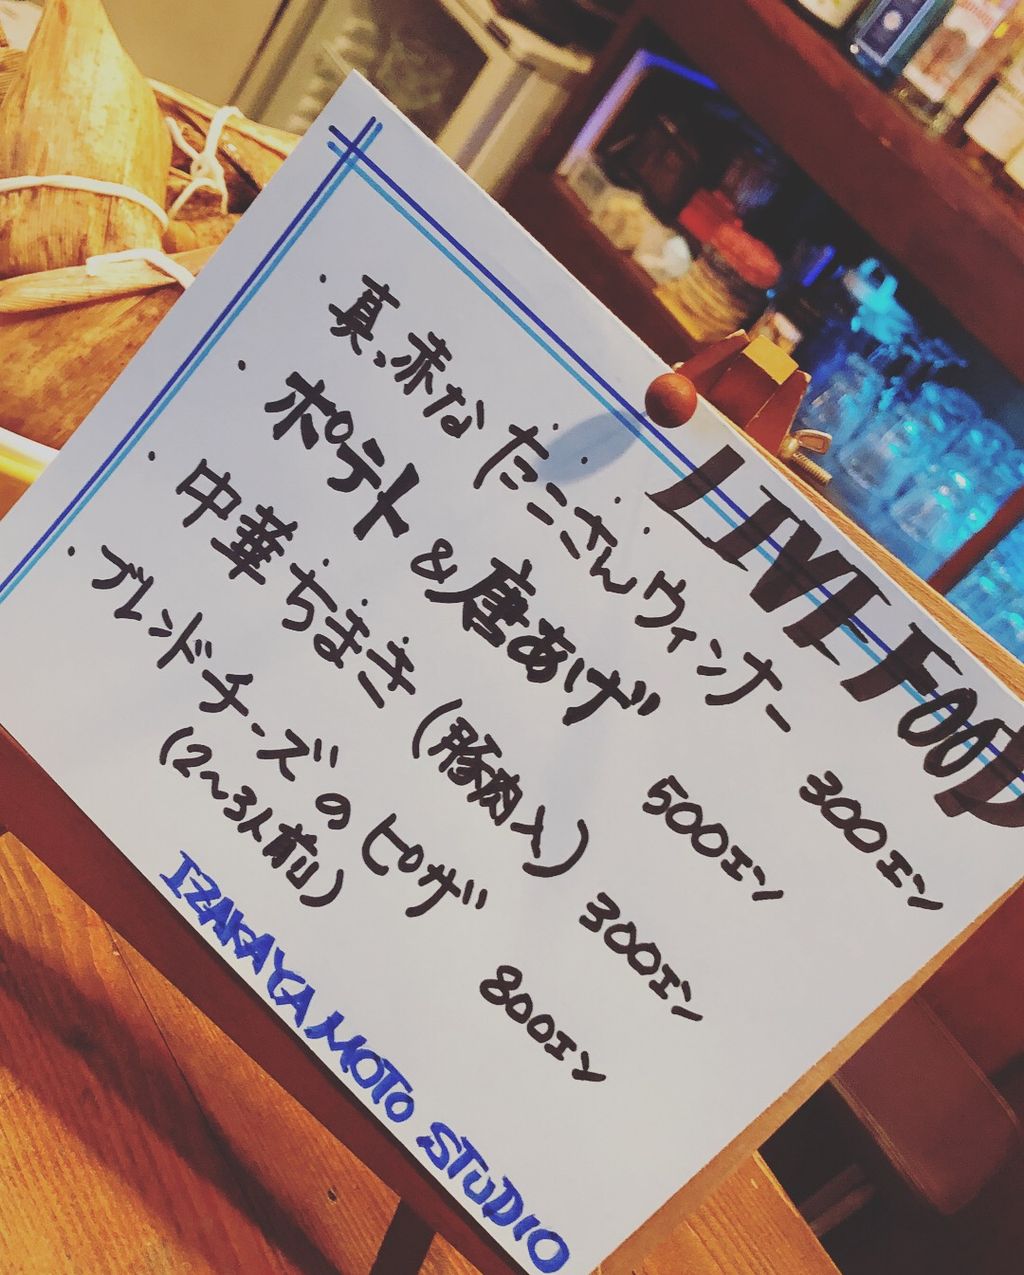 LIVE FOOD
・真、赤な たこさんウィンナー 300エン
・ポテト & 唐あげ 500エン
・中華ちまき (豚肉入) 300エン
・ブレンドチーズのピザ 800エン
(2〜3人前)
IZAKAYA MOTO STUDIO